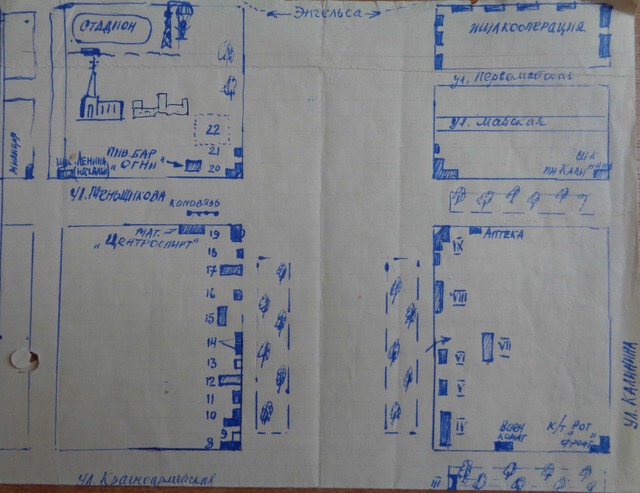 Энгельса
СТАДИОН
ЖИЛКООПЕРАЦИЯ
ул. Первомайская
ул. Майская
22
ПИВ. БАР
"ОГНИ"
21
20
ШК. ЛЕНИНА
ШК
ул. Меньшикова
КОНОВЯЗЬ
МАГ.
"ЦЕНТРОСПИРТ"
19
18
17
16
15
14
13
12
11
10
9
8
АПТЕКА
IX
VIII
VII
VI
V
IV
ВОЕН
КОМАТ
К/Т "РОТ
ФРОНТ"
III
УЛ. КАЛИНИНА
ул. Красноармейская